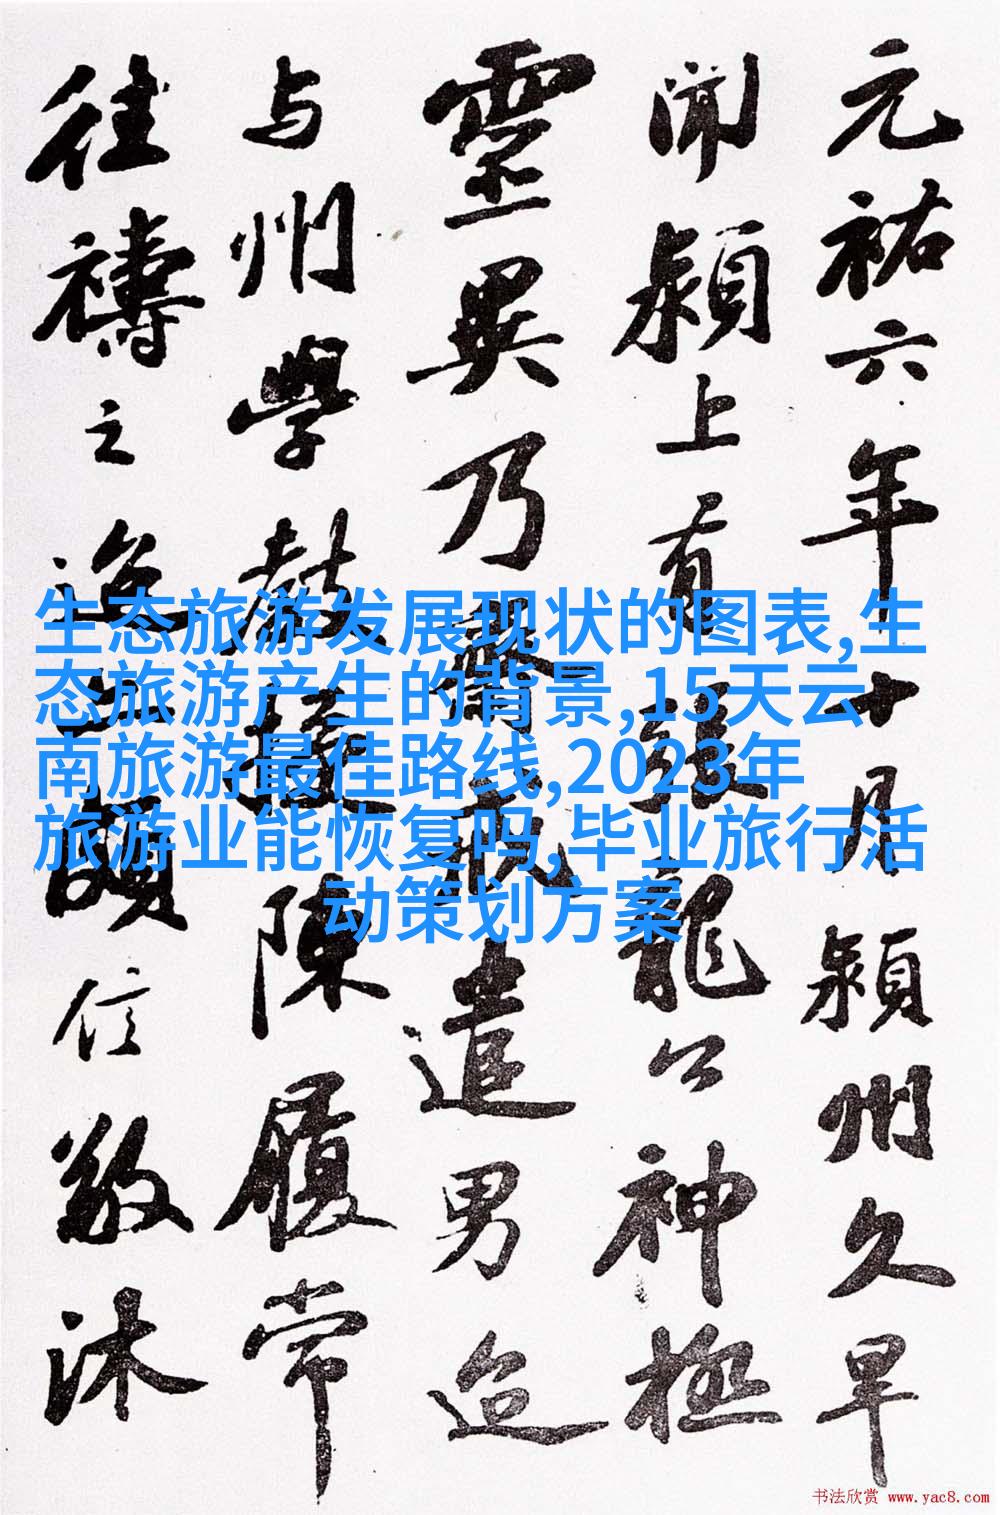 元祐六年十月颍州久旱
闻颍上有張龍公神極
靈異乃齋戒遣男迨
与州學教授陳履常
往禱之迨亦頗信敬沐
生态旅游发展现状的图表,生
态旅游产生的背景,15天云
南旅游最佳路线,2023年
旅游业能恢复吗,毕业旅行活
动策划方案
书法欣赏 www.yac8.com